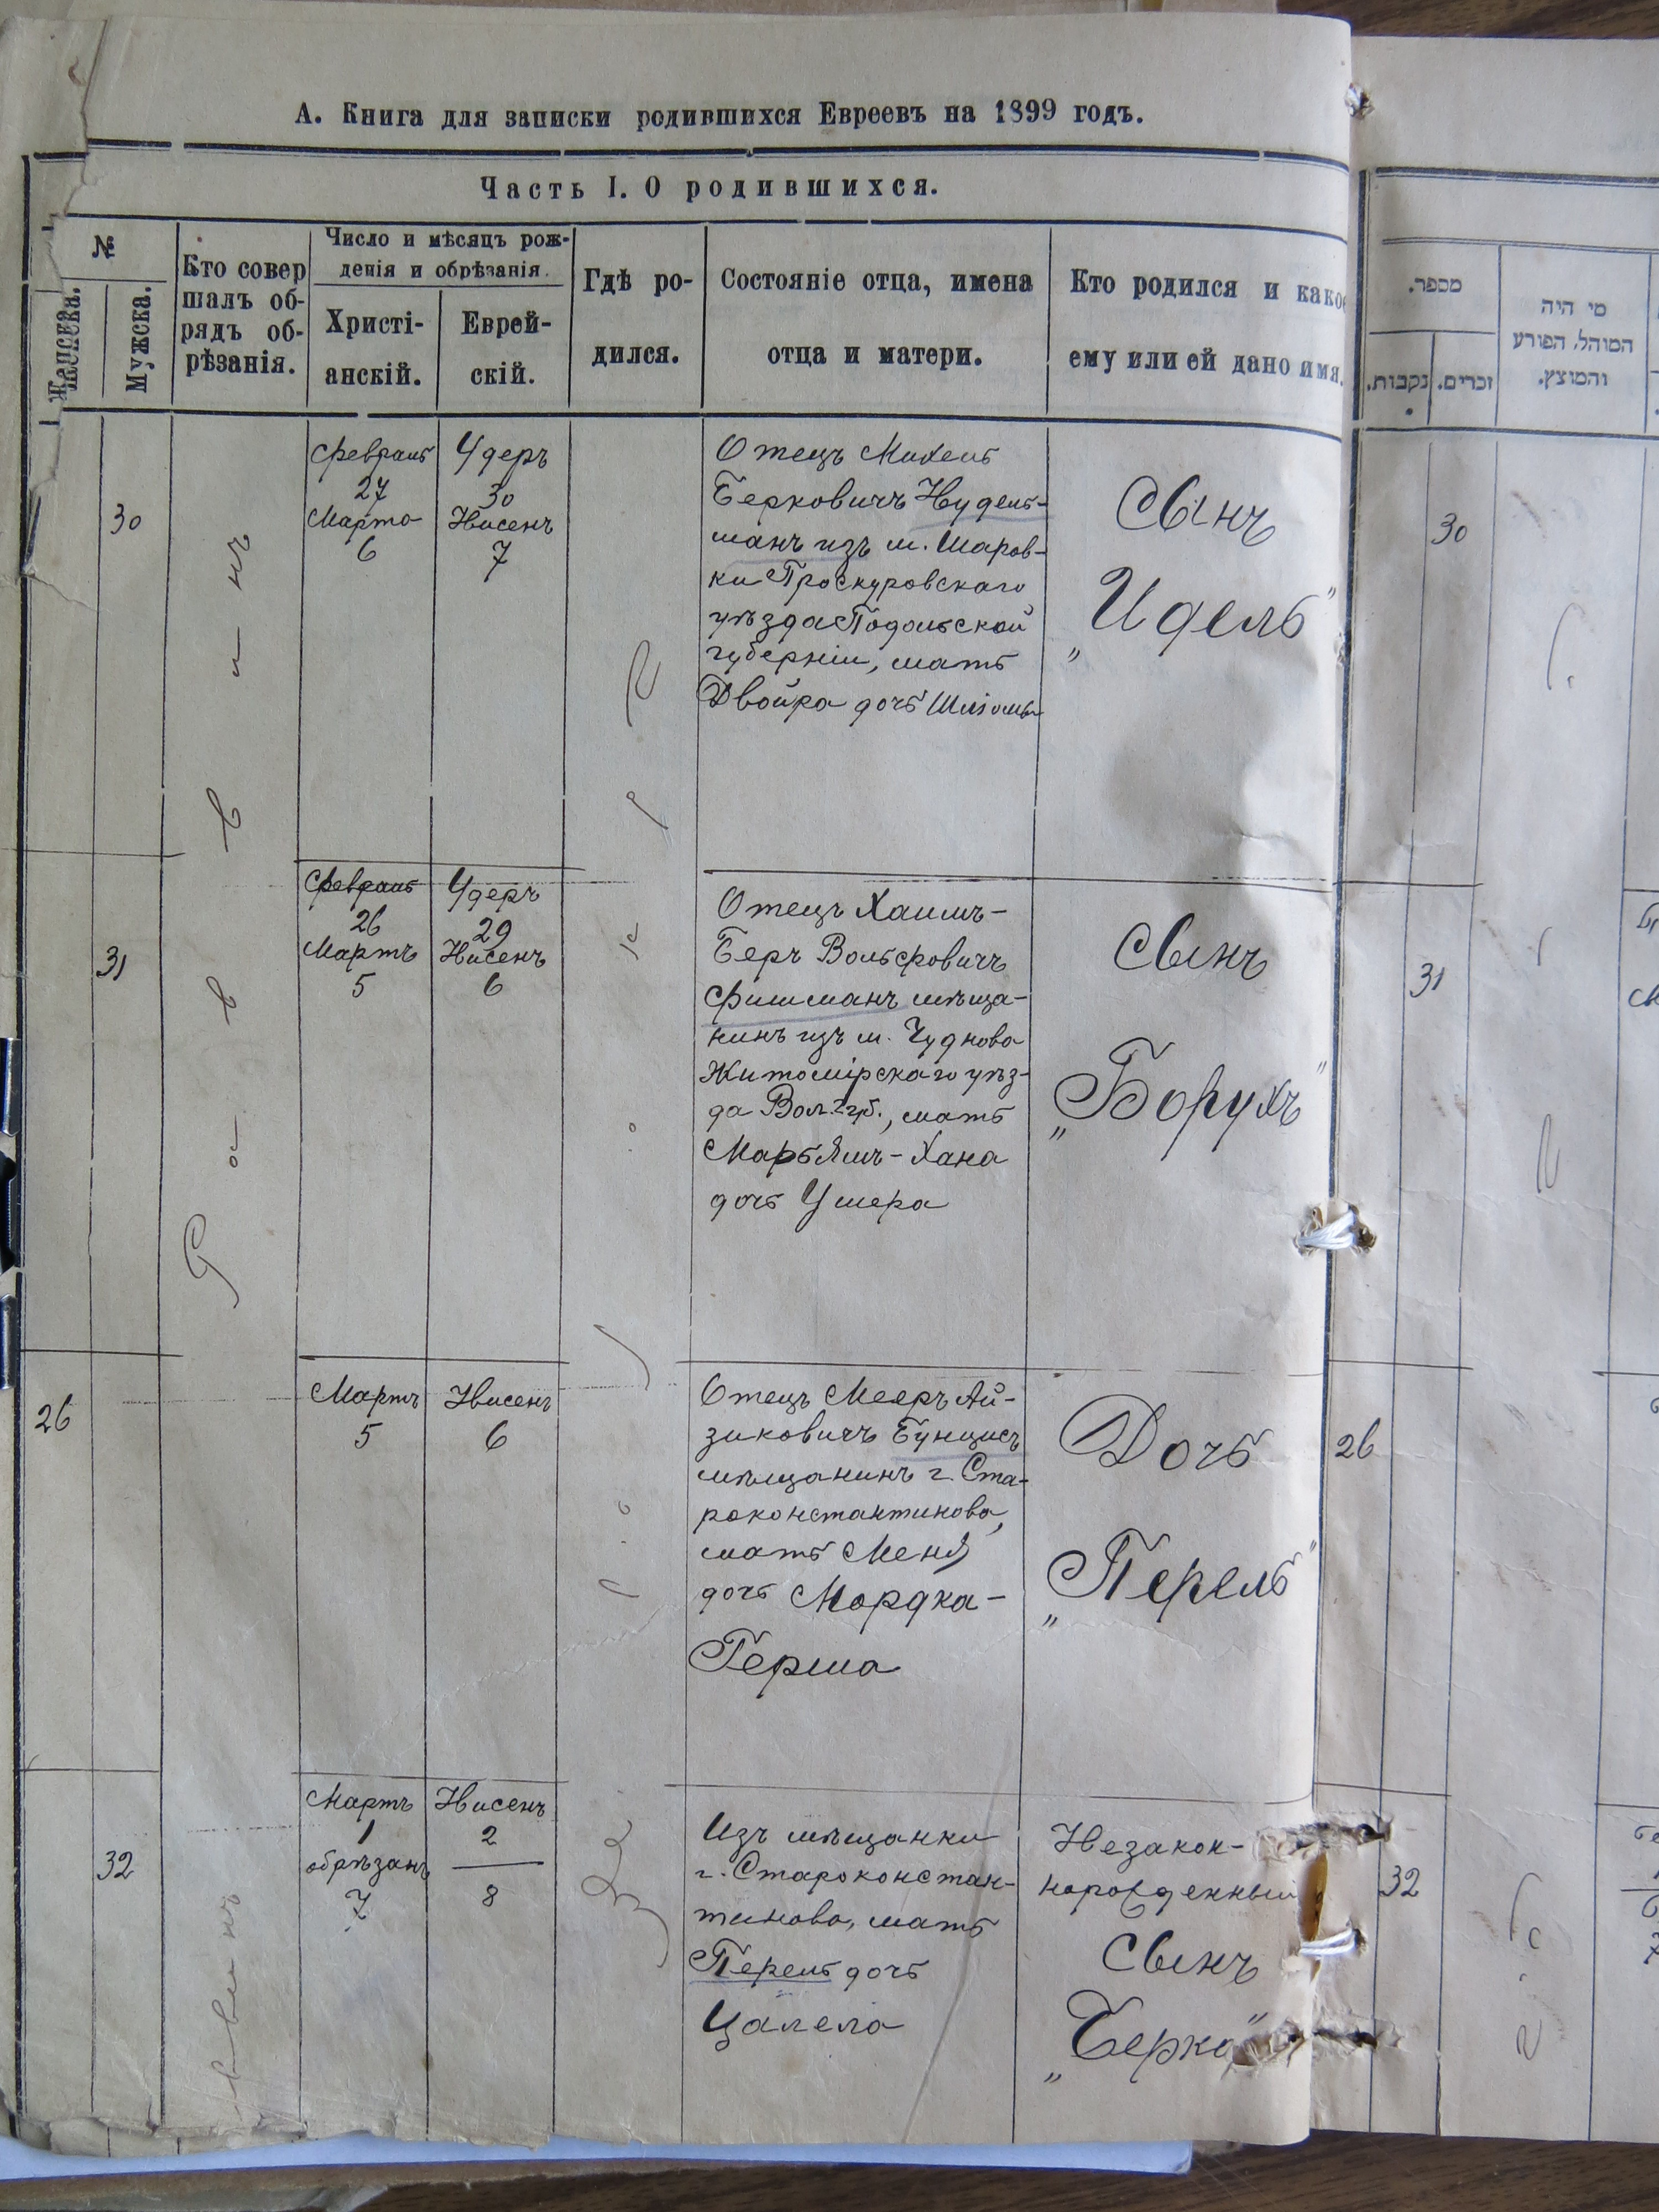 А. Книга для записки родившихся Евреевъ на 1899 годъ.
Часть I. О родившихся.
№
Женска.
Мужска.
Кто совер
шалъ об-
рядъ об-
рѣзанія.
Число и мѣсяцъ рож-
денія и обрѣзанія.
Христі-
анскій.
Еврей-
скій.
Гдѣ ро-
дился.
Состояніе отца, имена
отца и матери.
Кто родился и какое
ему или ей дано имя.
מספר.
נקבות.
זכרים.
מי היה
המוהל, הפורע
והמוצץ.
30
Февраль
27
Марта
6
Удеръ
30
Нисенъ
7
Отецъ Михель
Берковичъ Нудель-
манъ изъ м. Шаров-
ки Проскуровскаго
уѣзда Подольской
губерніи, мать
Двойра дочь
Сынъ
„Идель"
30
31
Февраль
26
Мартъ
5
Удеръ
29
Нисенъ
6
Отецъ Хаимъ-
Беръ Вольфовичъ
Фишманъ мѣща-
нинъ изъ м. Чуднова
Житомірскаго уѣз-
да Вол. губ., мать
Марьямъ-Хана
дочь Ушера
Сынъ
„Борухъ"
31
26
Мартъ
5
Нисенъ
6
Отецъ Мееръ Ай-
зиковичъ Бунцисъ
мѣщанинъ г. Ста-
роконстантинова,
мать Меня
дочь Мордка-
Герша
Дочь
„Перель"
26
32
Мартъ
1
обрѣзанъ
7
Нисенъ
2
8
Изъ мѣщанки
г. Староконстан-
тинова, мать
Перель дочь
Цалела
Незакон-
норожденный
Сынъ
„Берко"
32